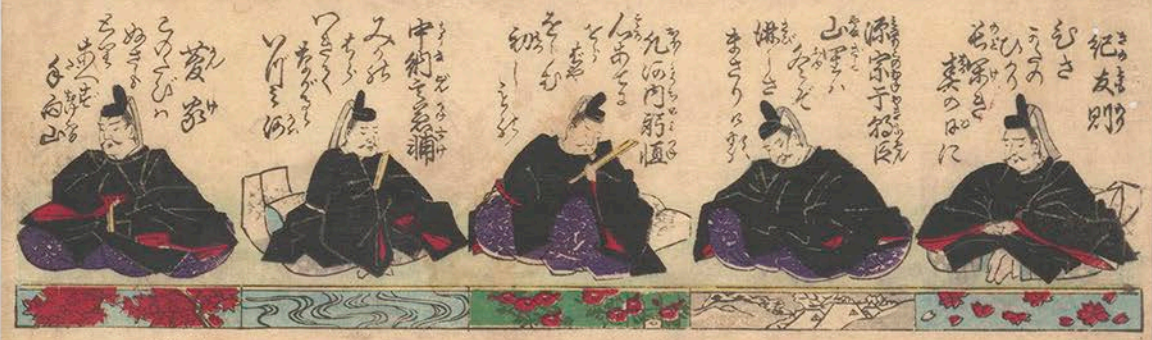 紀友則
ひさ
かたの
ひかり
長閑き
春の日に
源宗于朝臣
山里ハ
冬ぞ
淋しさ
まさりける
凡河内躬恒
心あてに
をらばや
をらむ
初しもの
中納言兼輔
みかの
はら
わきて
ながるゝ
いづみ河
菅家
このたびハ
ぬさも
とり
あへず
手向山